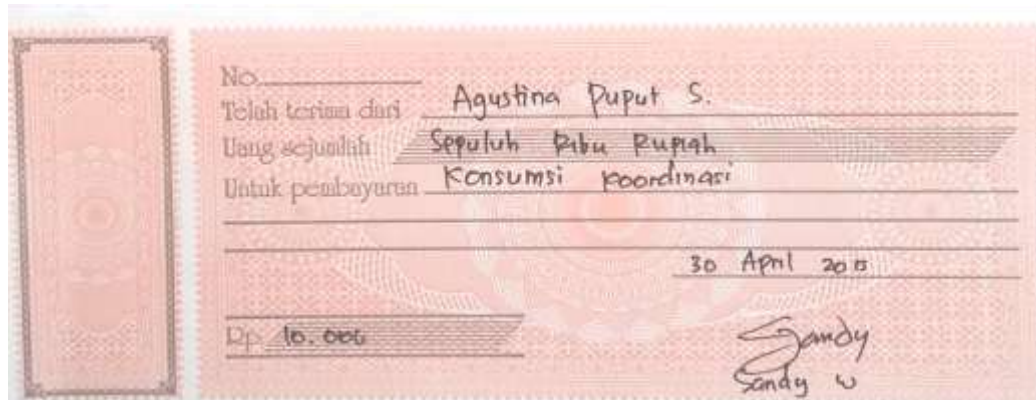 No.
Telah terima dari Agustina Puput S.
Uang sejumlah Sepuluh Ribu Rupiah
Untuk pembayaran Konsumsi Koordinasi
30 April 2015
Rp. 10.000
Sandy
Sandy W